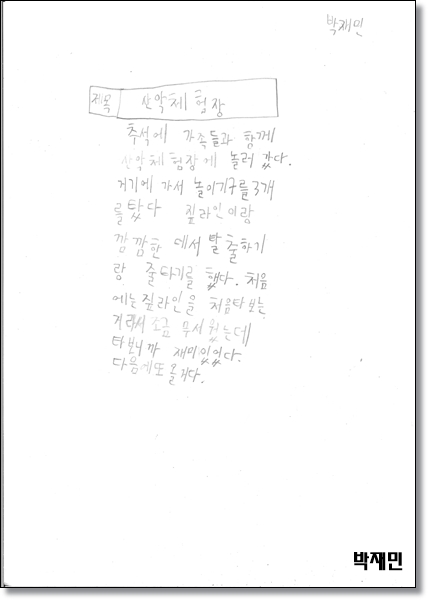 박재민
제목 산악체험장
추석에 가족들과 함께
산악체험장에 놀러 갔다.
거기에 가서 놀이기구를 3개
를 탔다 짚라인이랑
깜깜한 데서 탈출하기
랑 줄타기를 했다. 처음
에는 짚라인을 처음타보는
거라서 조금 무서웠는데
타보니까 재미있었다.
다음에또 올거다.
박재민